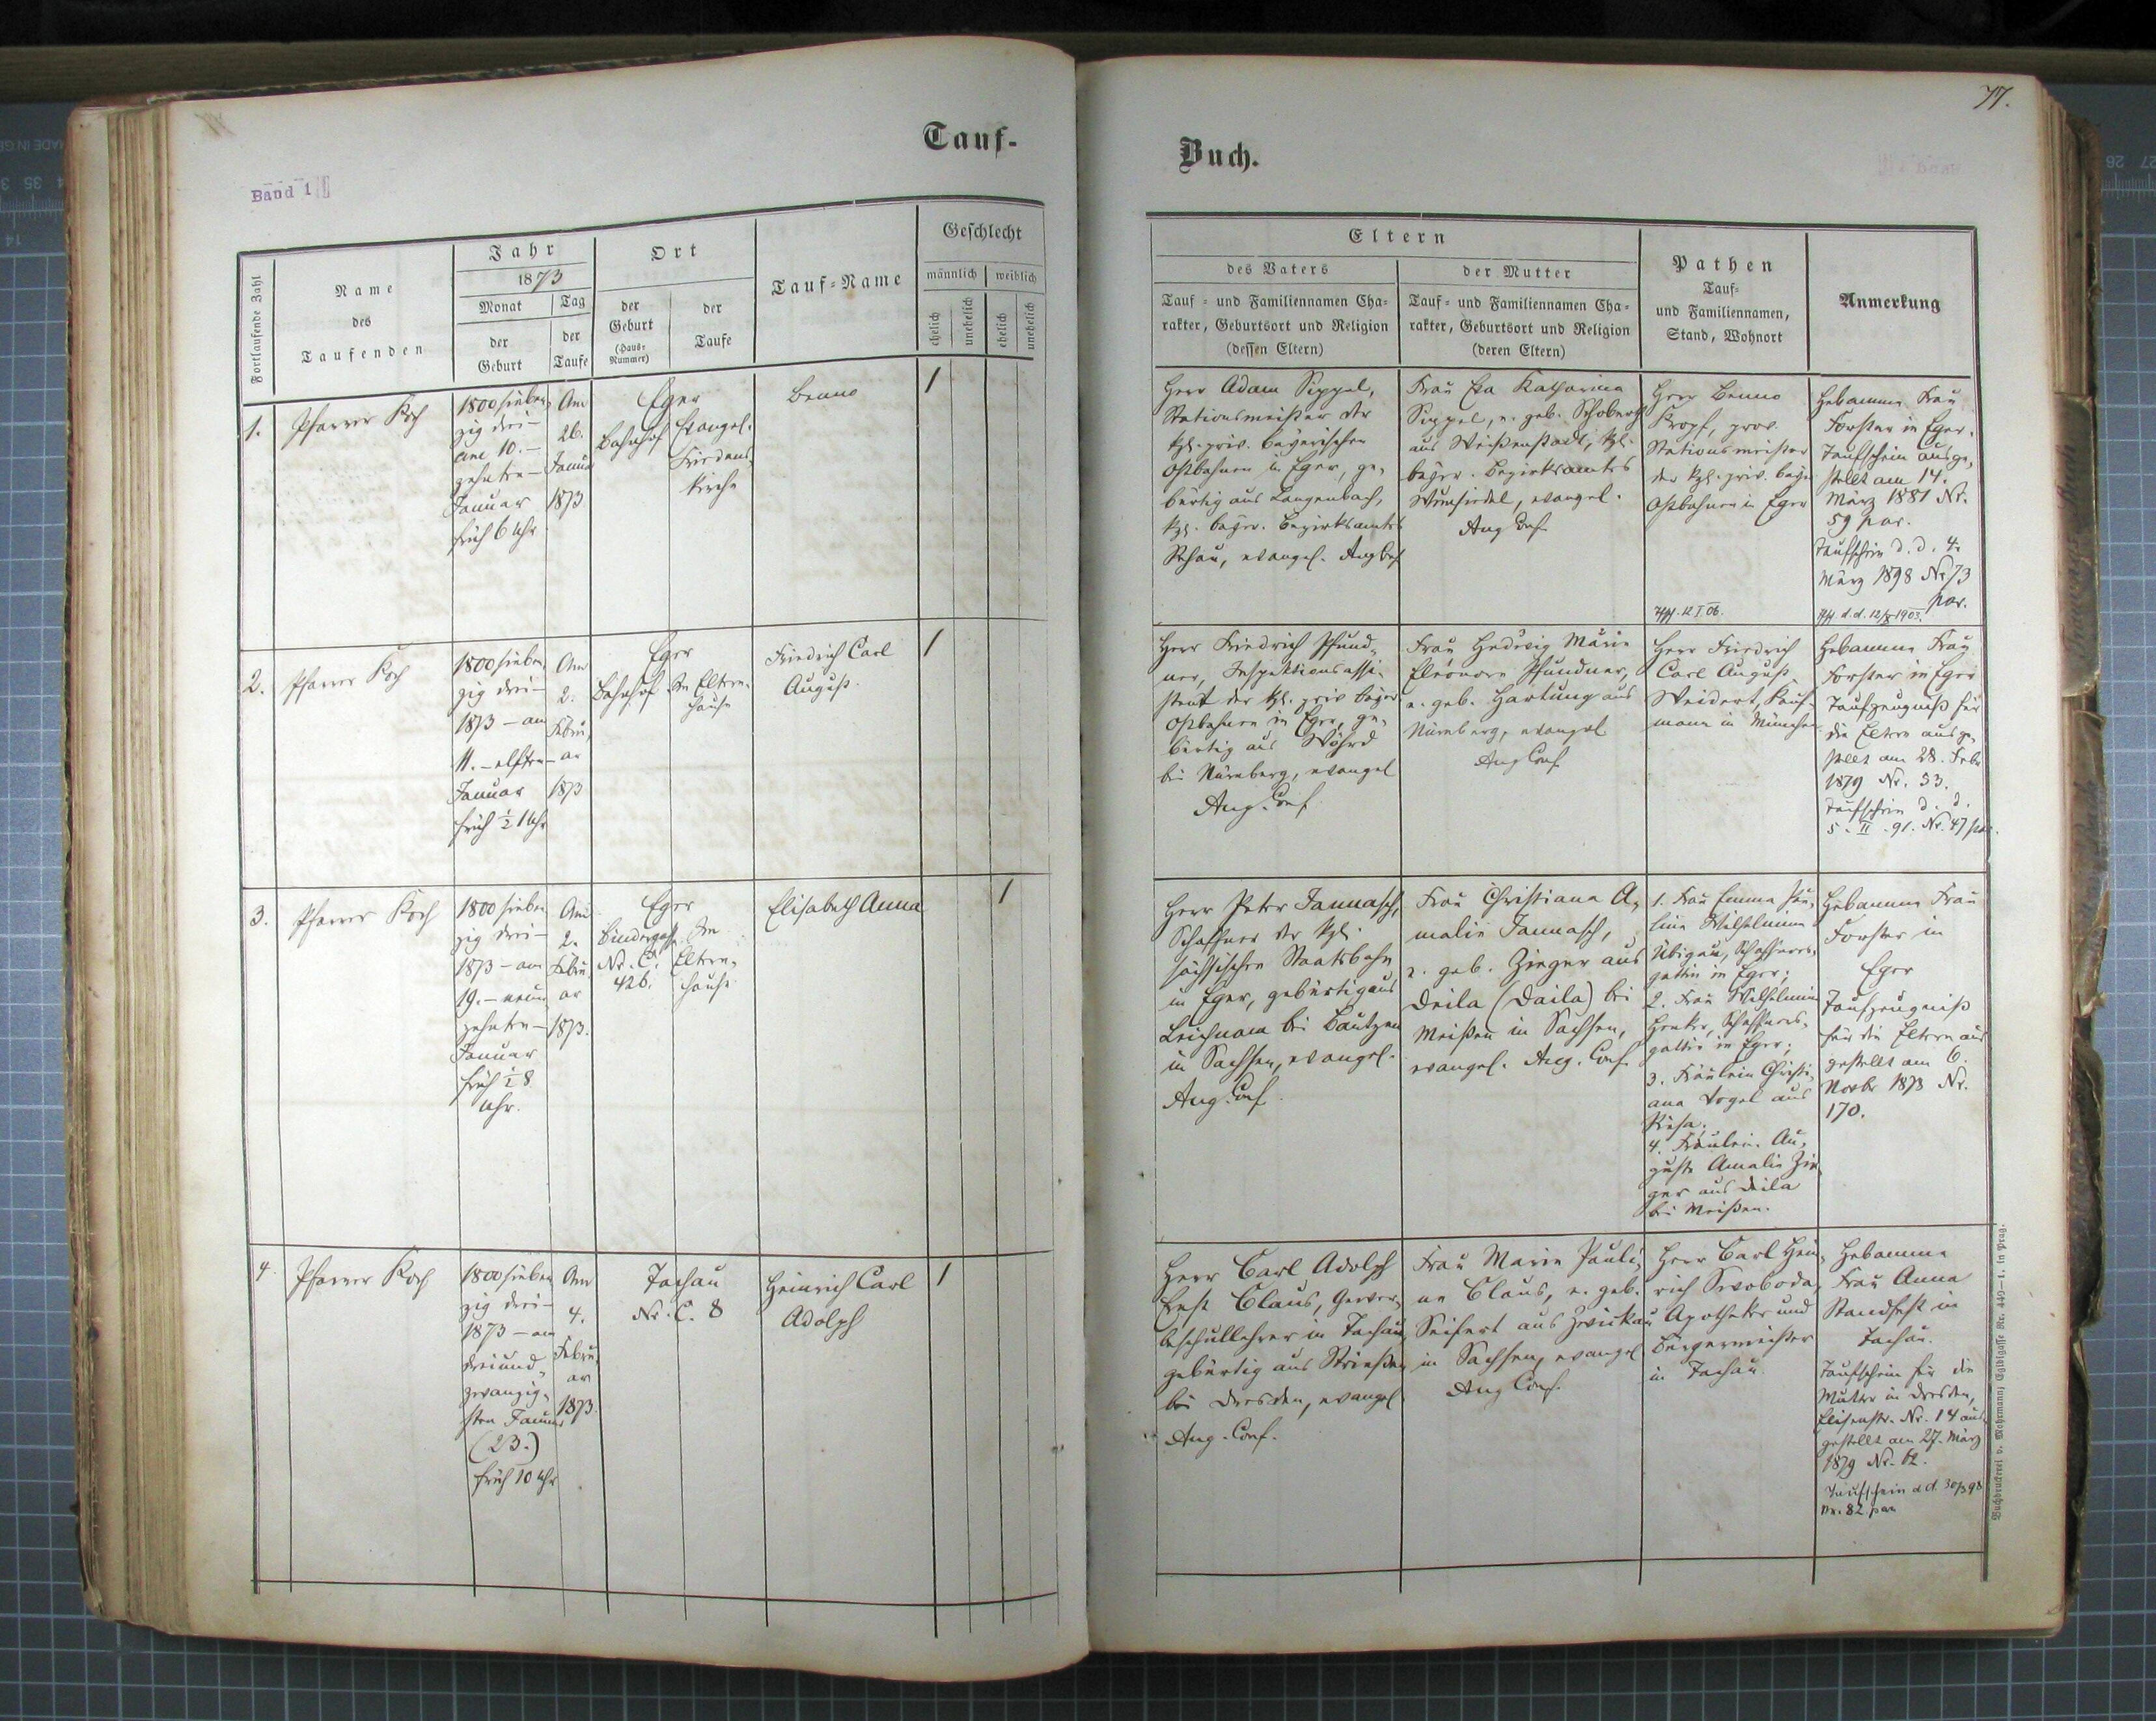 Tauf-
Buch.
77.
Band 1
Fortlaufende Zahl
Name
des
Taufenden
Jahr
1873
Monat
Tag
der
Geburt
der
Taufe
Ort
der
Geburt
(Haus-
Nummer)
der
Taufe
Tauf-Name
Geschlecht
männlich
weiblich
ehelich
unehelich
ehelich
unehelich
Eltern
des Vaters
Tauf- und Familiennamen Cha-
rakter, Geburtsort und Religion
(dessen Eltern)
der Mutter
Tauf- und Familiennamen Cha-
rakter, Geburtsort und Religion
(deren Eltern)
Pathen
Tauf-
und Familiennamen,
Stand, Wohnort
Anmerkung
1.
Pfarrer Koch
1800 sieben
zig drei-
am 10.-
zehnten-
Januar
früh 6 Uhr
Am
26.
Januar
1873
Eger
Bahnhof
Evangel.
Friedens
kirche
Benno
1
Herr Adam Sippel,
Stationsmeister der
kgl. priv. bayerischen
Ostbahnen in Eger, ge-
bürtig aus Langenbach,
kgl. bayer. Bezirksamtes
Rehau, evangel. Aug Conf
Frau Eva Katharina
Sippel, e. geb. Schoberth
aus Weißenstadt, kgl.
bayer. Bezirksamtes
Wunsiedel, evangel.
Aug Conf
Herr Benno
Kropf, prov.
Stationsmeister
der kgl. priv. bayer
Ostbahnen in Eger
12 I 06.
Hebamme Frau
Forster in Eger.
Taufschein ausge-
stellt am 14.
März 1881 Nr.
59 par.
Taufschein d. d. 4.
März 1898 Nr 73
par.
d. d. 12/X 1903.
2.
Pfarrer Koch
1800 sieben
zig drei-
1873 - am
11. - elften-
Januar
früh ½ 1 Uhr
Am
2.
Febru-
ar
1873
Eger
Bahnhof
Im Eltern-
hause
Friedrich Carl
August.
1
Herr Friedrich Pfund-
ner, Inspektionsassi-
stent der kgl. priv bayer
Ostbahnen in Eger, ge-
bürtig aus Wöhrd
bei Nürnberg, evangel
Aug. Conf
Frau Hedwig Marie
Eleonore Pfundner,
e. geb. Hartung aus
Nürnberg, evangel
Aug Conf
Herr Friedrich
Carl August
Weidert, Kauf-
mann in München
Hebamme Frau
Forster in Eger
Taufzeugniß für
die Eltern ausge-
stellt am 28. Febr
1879 Nr. 33.
Taufschein d. d.
5. II. 91. Nr. 47 par.
3.
Pfarrer Koch
1800 sieben
zig drei-
1873 - am
19. - neun
zehnten-
Januar
früh ½ 8
Uhr.
Am
2.
Febru
ar
1873.
Eger
Bindergasse
Nr. C.
426.
Im
Eltern-
hause
Elisabeth Anna
1
Herr Peter Jannasch,
Schaffner der kgl.
sächsischen Staatsbahn
in Eger, gebürtig aus
Leichnam bei Bautzen
in Sachsen, evangel.
Aug. Conf.
Frau Christiana A-
malie Jannasch,
e. geb. Zieger aus
Deila (Daila) bei
Meißen in Sachsen,
evangel. Aug. Conf.
1. Frau Emma Pau-
line Wilhelmine
Übigau, Schaffners-
gattin in Eger;
2. Frau Wilhelmine
Henker, Schaffners-
gattin in Eger;
3. Fräulein Christi-
ana Vogel aus
Riesa;
4. Fräulein Au-
guste Amalie Zie-
ger aus Deila
bei Meißen.
Hebamme Frau
Forster in
Eger
Taufzeugniß
für die Eltern aus
gestellt am 6.
Novbr 1873 Nr.
170.
4.
Pfarrer Koch
1800 sieben
zig drei-
1873 - am
dreiund-
zwanzig-
sten Januar
(23.)
früh 10 Uhr
Am
4.
Febru-
ar
1873.
Tachau
Nr. C. 8
Heinrich Carl
Adolph
1
Herr Carl Adolph
Ernst Claus, Gewer-
beschullehrer in Tachau,
gebürtig aus Strießen
bei Dresden, evangel.
Aug. Conf.
Frau Marie Pauli-
ne Claus, e. geb.
Seifert aus Zwickau
in Sachsen, evangel
Aug Conf.
Herr Carl Hein-
rich Swoboda,
Apotheker und
Bürgermeister
in Tachau.
Hebamme
Frau Anna
Standfest in
Tachau.
Taufschein für die
Mutter in Dresden,
Elisenstr. Nr. 14 aus
gestellt am 27. März
1879 Nr. 62.
Taufschein d d. 30/3 98
Nr. 82 par
Buchdruckerei v. Mohrmann, Egidigasse Nr. 449-1. in Prag.